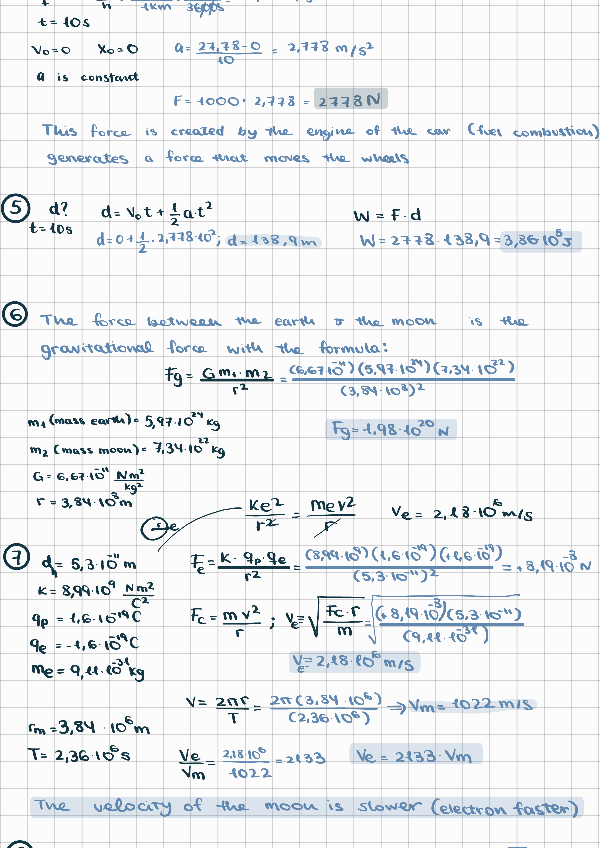 h 1km 3600s
t = 10s
V₀=0 X₀=0 a = (27,78-0)/10 = 2,778 m/s²
a is constant
F = 1000 · 2,778 = 2778 N
This force is created by the engine of the car (fuel combustion)
generates a force that moves the wheels
5 d? d = V₀t + 1/2 a·t² W = F·d
t = 10s d = 0 + 1/2 · 2,778·10²; d = 138,9 m W = 2778 · 138,9 = 3,86·10⁵ J
6 The force between the earth & the moon is the
gravitational force with the formula:
Fg = (G m₁·m₂)/r² = ((6,67·10⁻¹¹)(5,97·10²⁴)(7,34·10²²))/(3,84·10⁸)²
m₁ (mass earth) = 5,97·10²⁴ kg Fg = 1,98·10²⁰ N
m₂ (mass moon) = 7,34·10²² kg
G = 6,67·10⁻¹¹ Nm²/kg²
r = 3,84·10⁸ m
e Ke²/r² = mev²/r Ve = 2,18·10⁶ m/s
7 d = 5,3·10⁻¹¹ m Fe = (K·qp·qe)/r² = ((8,99·10⁹)(1,6·10⁻¹⁹)(+1,6·10⁻¹⁹))/(5,3·10⁻¹¹)² = +8,19·10⁻⁸ N
K = 8,99·10⁹ Nm²/C²
qp = 1,6·10⁻¹⁹ C Fc = mv²/r ; Ve = √(Fc·r/m) = √((+8,19·10⁻⁸)(5,3·10⁻¹¹)/(9,11·10⁻³¹))
qe = -1,6·10⁻¹⁹ C
me = 9,11·10⁻³¹ kg Ve = 2,18·10⁶ m/s
V = 2πr/T = 2π(3,84·10⁶)/(2,36·10⁶) ⇒ Vm = 1022 m/s
rm = 3,84·10⁶ m
T = 2,36·10⁶ s Ve/Vm = 2,18·10⁶/1022 = 2133 Ve = 2133·Vm
The velocity of the moon is slower (electron faster)